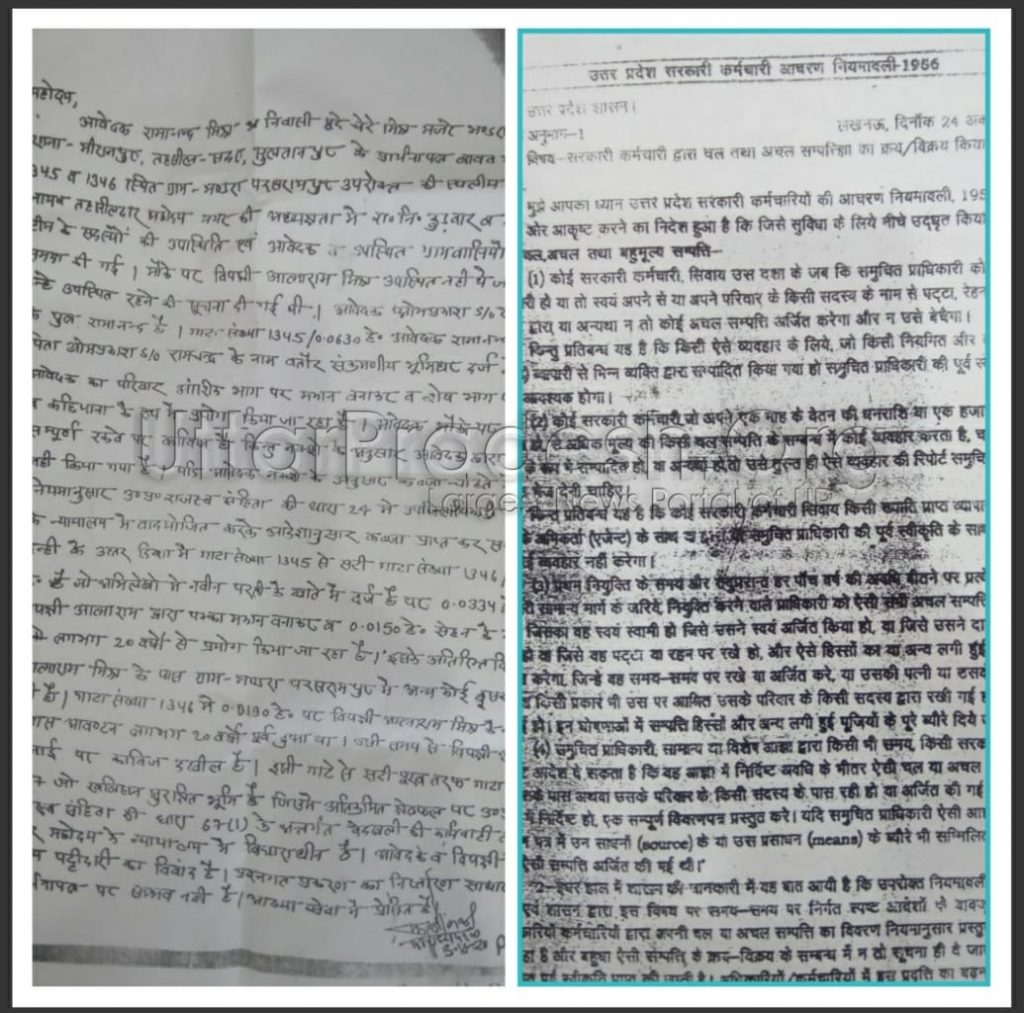 महोदय,
आवेदक रामानन्द मिश्र निवासी पूरे चेरे मिश्र मजरे
थाना-मीरानपुर, तहसील-सदर, सुलतानपुर के प्रार्थनापत्र बावत
1345 व 1346 स्थित ग्राम- परसरामपुर उपरोक्त की स्थलीय
नायब तहसीलदार महोदय नगर की अध्यक्षता में रा० नि० व
टीम के सदस्यों की उपस्थिति एवं आवेदक व उपस्थित ग्रामवासियों
समक्ष की गई। मौके पर विपक्षी आत्माराम मिश्र उपस्थित नही थे
उपस्थित रहने की सूचना दी गई थी। आवेदक S/o
के पुत्र रामानन्द है। गाटा संख्या 1345/0.0630 हे० आवेदक रामानन्द
पिता ओमप्रकाश S/o रामचन्द्र के नाम बतौर संक्रमणीय भूमिधर दर्ज
आवेदक का परिवार आंशिक भाग पर मकान बनाकर व शेष भाग
के रूप में प्रयोग किया जा रहा है। आवेदक मौके पर
सम्पूर्ण रकबे पर काबिज है किन्तु नक्शे के अनुसार आवेदक द्वारा
नही किया गया है। यदि आवेदक नक्शे के अनुसार कब्जा चाहते
नियमानुसार उ०प्र० राजस्व संहिता की धारा 24 में
के न्यायालय में वाद योजित करके आदेशानुसार कब्जा प्राप्त कर
के उत्तर दिशा में गाटा संख्या 1345 से सटी गाटा संख्या 1346
है जो अभिलेखों में नवीन परती के खाते में दर्ज है पर 0.0334
विपक्षी आत्माराम द्वारा पक्का मकान बनाकर व 0.0150 हे० सेहन के
लगभग 20 वर्षों से प्रयोग किया जा रहा है। इसके अतिरिक्त
आत्माराम मिश्र के पास ग्राम- परसरामपुर में अन्य कोई
है। गाटा संख्या 1346 में 0.0190 हे० पर विपक्षी आत्माराम मिश्र के
आवण्टन लगभग 20 वर्षों पूर्व हुआ था। उसी समय से विपक्षी
पर काबिज दखील है। इसी गाटे से सटी पूरब तरफ गाटा
जो खलिहान सुरक्षित भूमि है जिसमें अतिक्रमित क्षेत्रफल पर उ०प्र०
राजस्व संहिता की धारा 67(1) के अन्तर्गत बेदखली की कार्यवाही
महोदय के न्यायालय में विचाराधीन है। आवेदक व विपक्षी
पट्टीदारी का विवाद है। प्रश्नगत प्रकरण का निस्तारण
पर सम्भव नही है। आख्या सेवा में प्रेषित है।
उत्तर प्रदेश सरकारी कर्मचारी आचरण नियमावली-1956
उत्तर प्रदेश शासन।
अनुभाग-1
लखनऊ, दिनाँक 24
विषय-सरकारी कर्मचारी द्वारा चल तथा अचल सम्पत्तियों का क्रय/विक्रय किया
मुझे आपका ध्यान उत्तर प्रदेश सरकारी कर्मचारियों की आचरण नियमावली, 195
ओर आकृष्ट करने का निदेश हुआ है कि जिसे सुविधा के लिये नीचे उद्धृत किया
चल,अचल तथा बहुमूल्य सम्पत्ति-
(1) कोई सरकारी कर्मचारी, सिवाय उस दशा के जब कि समुचित प्राधिकारी को
री हो या तो स्वयं अपने से या अपने परिवार के किसी सदस्य के नाम से पट्टा, रेहन
द्वारा या अन्यथा न तो कोई अचल सम्पत्ति अर्जित करेगा और न उसे बेचेगा।
किन्तु प्रतिबन्ध यह है कि किसी ऐसे व्यवहार के लिये, जो किसी नियमित और
व्यापारी से भिन्न व्यक्ति द्वारा सम्पादित किया गया हो समुचित प्राधिकारी की पूर्व
आवश्यक होगा।
(2) कोई सरकारी कर्मचारी जो अपने एक माह के वेतन की धनराशि या एक हजार
से अधिक मूल्य की किसी चल सम्पत्ति के सम्बन्ध में कोई व्यवहार करता है,
के रूप में सम्पादित हो, या अन्यथा हो तो उसे तुरन्त ही ऐसे व्यवहार की रिपोर्ट समुचित
भेज देनी चाहिए।
किन्तु प्रतिबन्ध यह है कि कोई सरकारी कर्मचारी सिवाय किसी ख्याति प्राप्त
अभिकर्ता (एजेन्ट) के साथ या द्वारा या समुचित प्राधिकारी की पूर्व स्वीकृति के
व्यवहार नहीं करेगा।
(3) प्रथम नियुक्ति के समय और तदुपरान्त हर पाँच वर्ष की अवधि बीतने पर
सामान्य मार्ग के जरिये, नियुक्ति करने वाले प्राधिकारी को ऐसी सभी अचल सम्पत्ति
जिसका वह स्वयं स्वामी हो जिसे उसने स्वयं अर्जित किया हो, या जिसे उसने दा
या जिसे वह पट्टा या रहन पर रखे हो, और ऐसे हिस्सों का या अन्य लगी हुई
करेगा, जिन्हें वह समय-समय पर रखे या अर्जित करे, या उसकी पत्नी या उसके
किसी प्रकार भी उस पर आश्रित उसके परिवार के किसी सदस्य द्वारा रखी गई
हो। इन घोषणाओं में सम्पत्ति हिस्सों और अन्य लगी हुई पूंजियों के पूरे ब्यौरे दिये
(4) समुचित प्राधिकारी, सामान्य या विशेष आज्ञा द्वारा किसी भी समय, किसी
आदेश दे सकता है कि वह आज्ञा में निर्दिष्ट अवधि के भीतर ऐसी चल या अचल
पास अथवा उसके परिवार के किसी सदस्य के पास रही हो या अर्जित की गई
निर्दिष्ट हो, एक सम्पूर्ण विवरणपत्र प्रस्तुत करे। यदि समुचित प्राधिकारी ऐसी
पत्र में उन साधनों (source) के या उस प्रसाधन (means) के ब्यौरे भी सम्मिलित
ऐसी सम्पत्ति अर्जित की गई थी।"
2-इधर हाल में शासन की जानकारी में यह बात आयी है कि उपरोक्त नियमावली
एवं शासन द्वारा इस विषय पर समय-समय पर निर्गत स्पष्ट आदेशों के
कर्मचारियों द्वारा अपनी चल या अचल सम्पत्ति का विवरण नियमानुसार
है और बहुधा ऐसी सम्पत्ति के क्रय-विक्रय के सम्बन्ध में न तो सूचना ही दे
पूर्व स्वीकृति प्राप्त की जाती है। अधिकारियों/कर्मचारियों में इस प्रवृति का
UttarPradesh.Org
Largest News Portal of UP